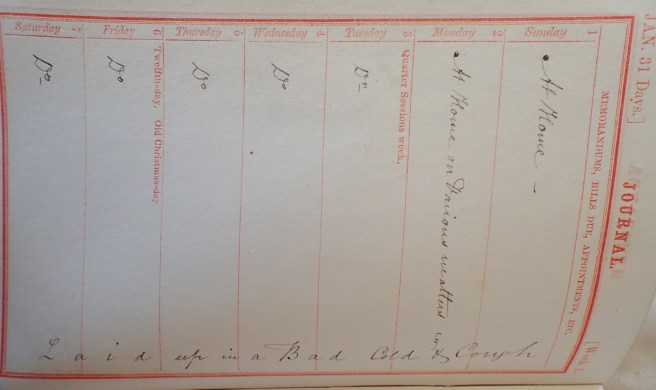 JAN. 31 Days.]
JOURNAL.
MEMORANDUMS, BILLS DUE, APPOINTMENTS, ETC.
1
Sunday
At Home –
2
Monday
At Home on Various matters
3
Tuesday
Quarter Sessions week.
Do
4
Wednesday
Do
5
Thursday
Do
6
Friday
Twelfth-day. Old Christmas-day.
Do
7
Saturday
Do
Laid up in a Bad Cold & Cough